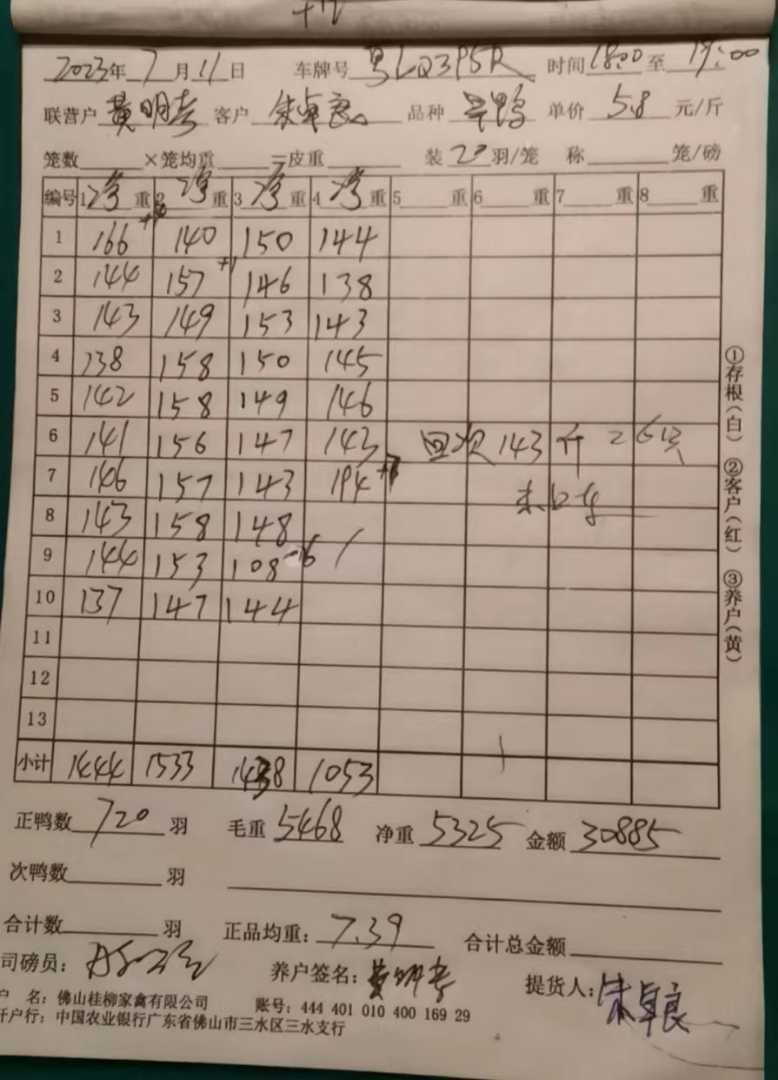 2023年 7 月 11 日 车牌号 粤LQ3P5R 时间 18:00 至 19:00
联营户 黄明 客户 朱卓良 品种 鸭 单价 5.8 元/斤
笼数 ×笼均重 =皮重 装 20 羽/笼 称 笼/磅
编号 1 净 重 2 净 重 3 净 重 4 净 重 5 重 6 重 7 重 8 重
1 166 140 150 144
2 144 157 +1 146 138
3 143 149 153 143
4 138 158 150 145
5 142 158 149 146
6 141 156 147 143 回次 143 斤 26只
7 146 157 143 194
8 143 158 148
9 144 153 108 -16
10 137 147 144
11
12
13
小计 1444 1533 1438 1053
正鸭数 720 羽 毛重 5468 净重 5325 金额 30885
次鸭数 羽
合计数 羽 正品均重: 7.39 合计总金额
司磅员: 养户签名: 黄明 提货人: 朱卓良
户 名: 佛山桂柳家禽有限公司 账号: 444 401 010 400 169 29
开户行: 中国农业银行广东省佛山市三水区三水支行
①存根(白) ②客户(红) ③养户(黄)